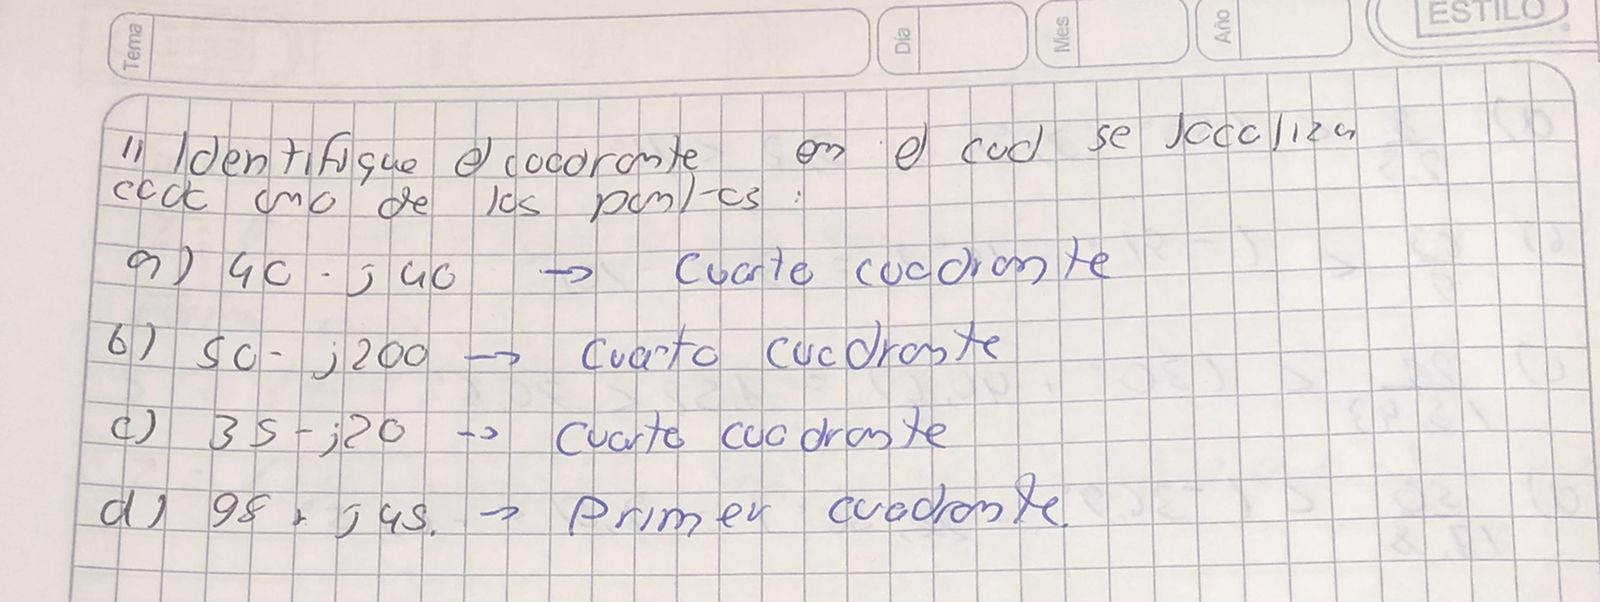 Tema Día Mes Año ESTILO
1) Identifique el cuadrante en el cual se localiza
cada uno de los puntos:
a) 40 - j40 → Cuarto cuadrante
b) 50 - j200 → Cuarto cuadrante
c) 35 - j20 → Cuarto cuadrante
d) 98 + j45. → Primer cuadrante.